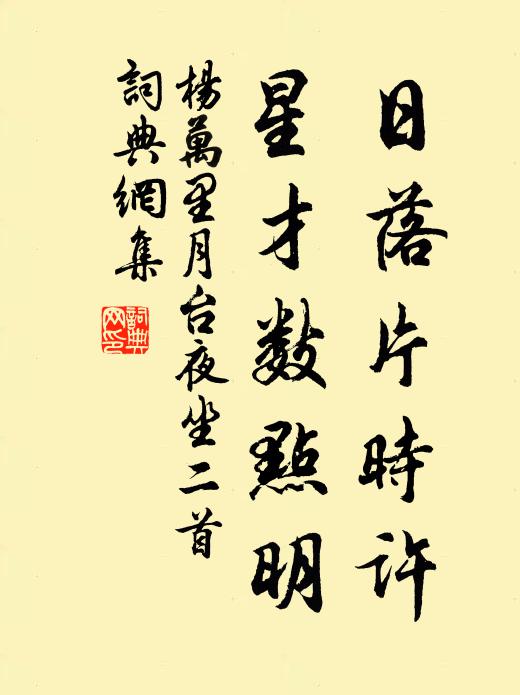 日落片時許
星才数點明
楊萬里月台夜坐二首
詞典網集
詞典
网印